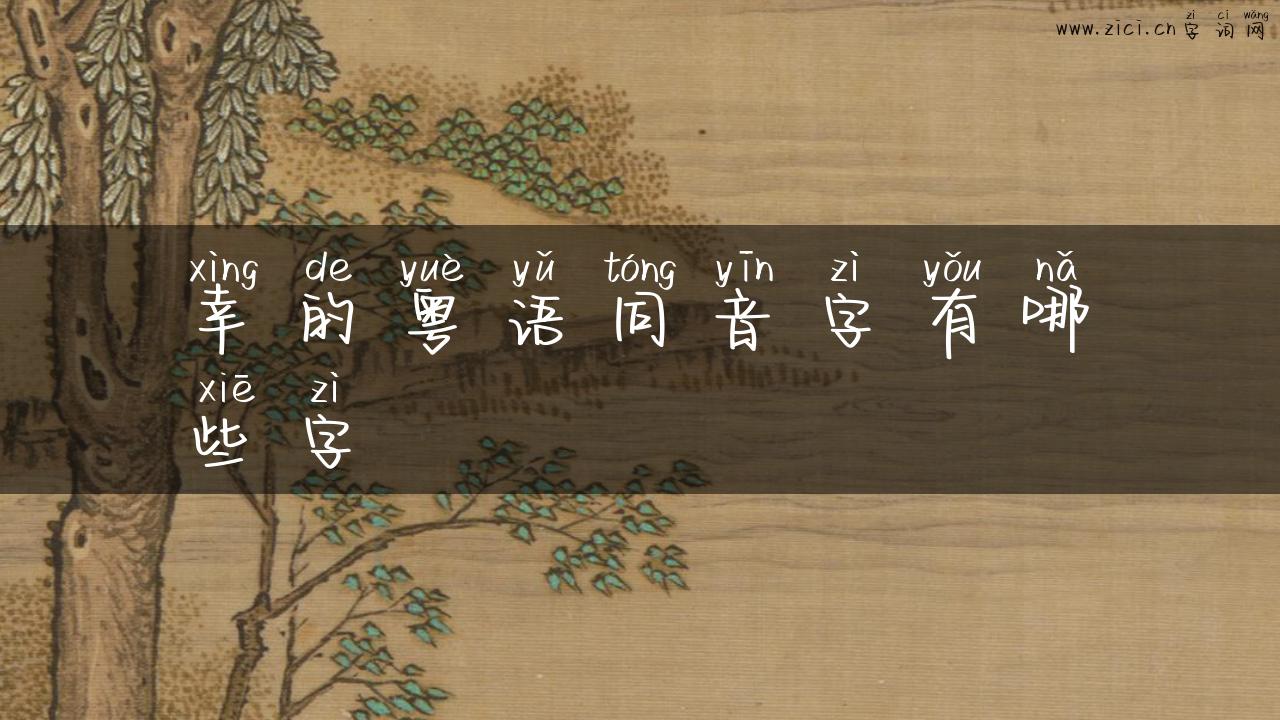 zì cí wǎng
www.zici.cn 字词网
xìng de yuè yǔ tóng yīn zì yǒu nǎ
幸的粤语同音字有哪
xiē zì
些字